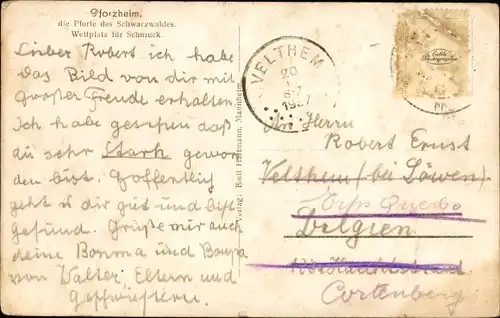 Pforzheim,
die Pforte des Schwarzwaldes.
Weltplatz für Schmuck.
Lieber Robert ich habe
das Bild von dir mit
großer Freude erhalten.
Ich habe gesehen daß
du sehr Stark gewor
den bist. Hoffentlich
geht es dir gut und bist
gesund. Grüße mir auch
deine Bonma und Bonpa
von Walter, Eltern und
Geschwistern.
Verlag: Emil Hartmann, Mannheim
VELTHEM
20
6-7
An Herrn
Robert Ernst
Velthem (bei Löwen)
Erps Querbs
Belgien
Cortenberg